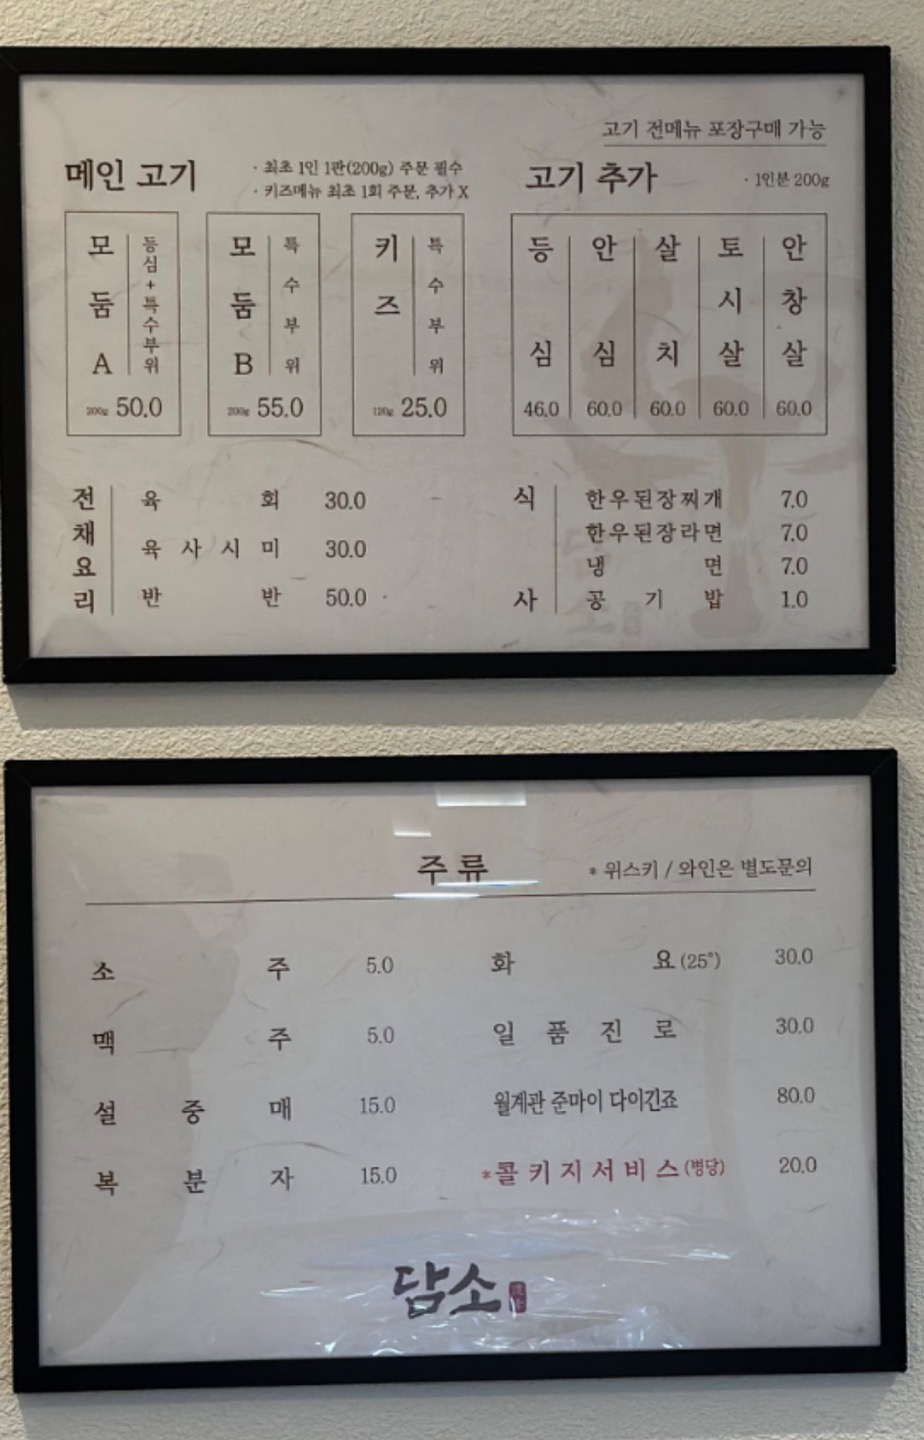 고기 전메뉴 포장구매 가능
메인 고기
· 최초 1인 1판(200g) 주문 필수
· 키즈메뉴 최초 1회 주문, 추가 X
모둠 A
등심+특수부위
200g 50.0
모둠 B
특수부위
200g 55.0
키즈
특수부위
120g 25.0
고기 추가
· 1인분 200g
등심 46.0
안심 60.0
살치 60.0
토시살 60.0
안창살 60.0
전채요리
육회 30.0
육사시미 30.0
반반 50.0
식사
한우된장찌개 7.0
한우된장라면 7.0
냉면 7.0
공기밥 1.0
주류
* 위스키 / 와인은 별도문의
소주 5.0
맥주 5.0
설중매 15.0
복분자 15.0
화요(25°) 30.0
일품진로 30.0
월계관 준마이 다이긴죠 80.0
*콜키지서비스(병당) 20.0
담소